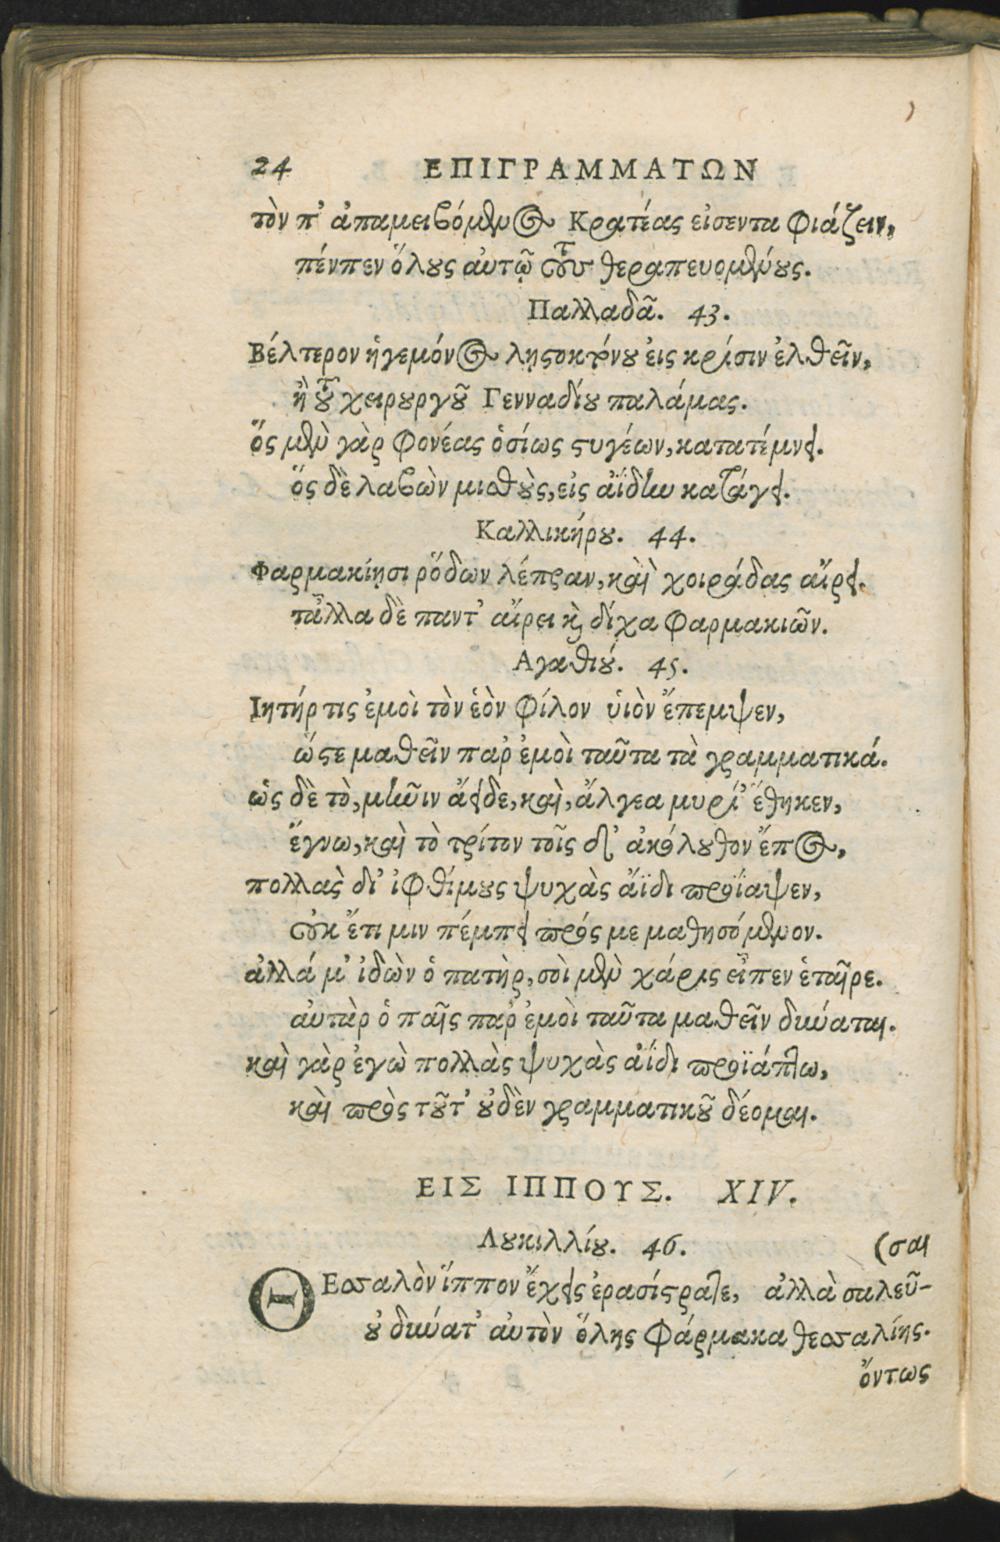 24 ΕΠΙΓΡΑΜΜΑΤΩΝ
τὸν π' ἀπαμειβόμενος Κρατέας εἰσεντα φιάζειν,
πένπεν ὅλους αὐτῷ τοὺς θεραπευομένους.
Παλλαδᾶ. 43.
Βέλτερον ἡγεμόνος λῃστοκτόνου εἰς κρίσιν ἐλθεῖν,
ἢ τοῦ χειρουργοῦ Γενναδίου παλάμας.
ὅς μὲν γὰρ φονέας ὁσίως στυγέων, κατατέμνει.
ὅς δὲ λαβὼν μισθοὺς, εἰς ἀΐδην κατάγει.
Καλλικήρου. 44.
Φαρμακίῃσι ῥόδων λέπραν, καὶ χοιράδας αἴρει.
τἄλλα δὲ παντ' αἴρει καὶ δίχα φαρμακιῶν.
Αγαθιού. 45.
Ιητήρ τις ἐμοὶ τὸν ἑὸν φίλον υἱὸν ἔπεμψεν,
ὥστε μαθεῖν παρ' ἐμοὶ ταῦτα τὰ γραμματικά.
ὡς δὲ τὸ, μῆνιν ἄειδε, καὶ, ἄλγεα μυρί' ἔθηκεν,
ἔγνω, καὶ τὸ τρίτον τοῖς δ' ἀκόλουθον ἔπος,
πολλὰς δ' ἰφθίμους ψυχὰς ἄϊδι προΐαψεν,
οὐκ ἔτι μιν πέμπει πρός με μαθησόμενον.
ἀλλά μ' ἰδὼν ὁ πατὴρ, σοὶ μὲν χάρις εἶπεν ἑταῖρε.
αὐτὰρ ὁ παῖς παρ' ἐμοὶ ταῦτα μαθεῖν δύναται.
καὶ γὰρ ἐγὼ πολλὰς ψυχὰς ἀΐδι προϊάπτω,
καὶ πρὸς τοῦτ' οὐδὲν γραμματικοῦ δέομαι.
ΕΙΣ ΙΠΠΟΥΣ. XIV.
Λουκιλλίου. 46. (σαι
ΘΕσσαλὸν ἵππον ἔχεις ἐρασίστρατε, ἀλλὰ σαλεῦ-
οὐ δύνατ' αὐτὸν ὅλης φάρμακα θεσσαλίης.
ὄντως